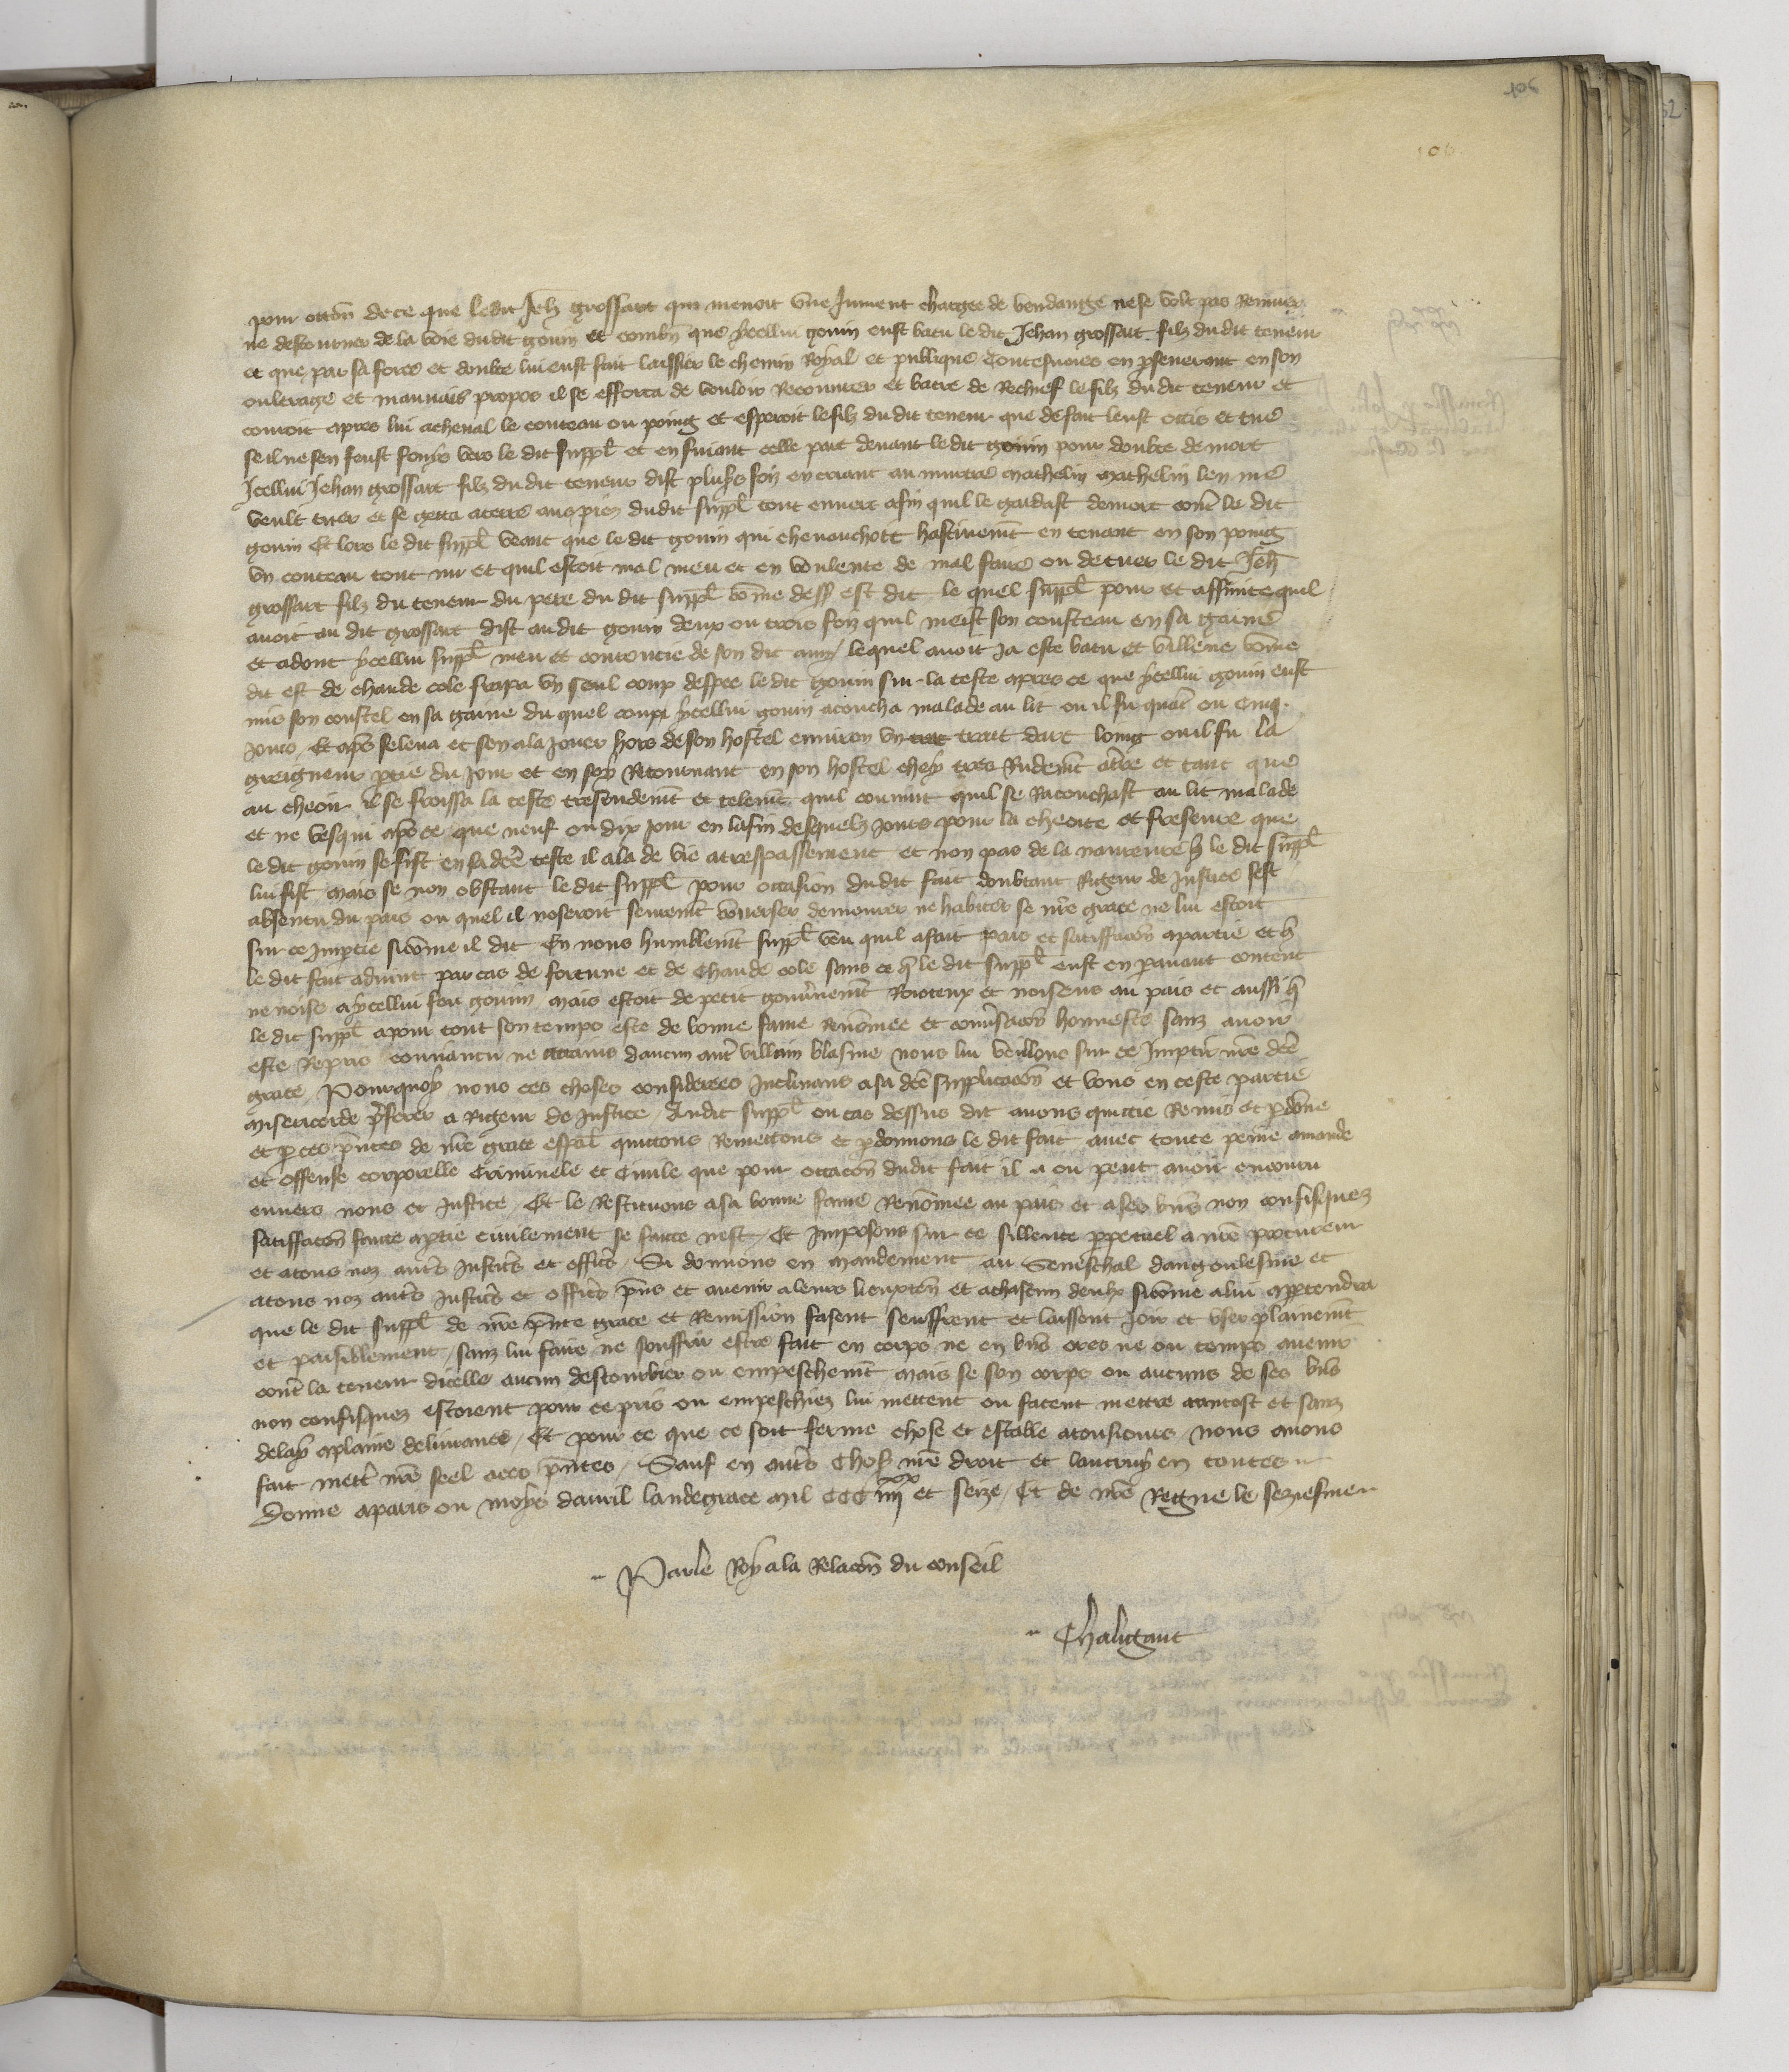 106
106
pour occon de ce que ledit Jeh grossart qui menoit une Jument chargee de vendange ne se volt pas Remuer
ne destourner de la voie dudit gouin et combn que ycellui gouin eust batu le dit Jehan grossart filz du dit teneur
et que par sa force et doubte lui eust fait laissier le chemin Royal et publique Toutesuoies en pseuerant en son
oultrage et mauuais propos il se efforca de vouloir Retourner et batre de Rechief le filz du dit teneur et
couroit apres lui acheual le couteau ou poing et esperoit le filz du dit teneur que de fait leust occis et tue
se il ne sen feust fouys vers le dit suppl et en fuiant celle part deuant le dit gouin pour doubte de mort
Icellui Jehan grossart filz du dit teneur dist plus foiz en criant au murtre mathelin mathelin len me
veult tuer et se getta aterre aus piez dudit suppl tout enuers afin quil le gardast de mort contre le dit
gouin Et lors le dit suppl veant que le dit gouin qui cheuauchoit hastiuemt en tenant en son poing
vn couteau tout nu et quil estoit mal meu et en voulente de mal faire ou de tuer le dit Jeh
grossart filz du teneur du pere du dit suppl come dess est dit le quel suppl pour et affinite quil
auoit au dit grossart dist audit gouin deux ou trois foiz quil meist son cousteau en sa gaine
et adont ycellui suppl meu et couroucie de son dit amy lequel auoit ja este batu et villene come
dit est de chaude cole frapa vn seul coup despee le dit gouin sur la teste apres ce que ycellui gouin eust
mis son coustel en sa gaine du quel coup ycellui gouin acoucha malade au lit ou il fu quatre ou cinq
jours Et apres se leua et sen ala jouer hors de son hostel enuiron vn trait trait darc loing ou il fu la
greigneur ptie du jour et en soy Retournant en son hostel chey tres Rudemt a tre et tant que
au cheoir il se froissa la teste tresfondemt et telemt quil conuint quil se Racouchast au lit malade
et ne vesqui apres ce que neuf ou dix jour en la fin desquelz jours pour la cheoite et froisseure que
le dit gouin se fist en sa dce teste il ala de vie a trespassement et non pas de la naureure q le dit suppl
lui fist Mais se non obstant le dit suppl pour occasion dudit fait doubtant Rigeur de justice sest
absentu du pais ou quel il noseroit seuremt conuerser demourer ne habiter se nre grace ne lui estoit
sur ce Imptie si come il dit En nous humblemt suppl veu quil a fait paix et satiffacon apartie et q
le dit fait aduint par cas de fortune et de chaude cole sans ce q le dit suppl eust en pauant content
ne noise a ycellui feu gouin mais estoit de petit gouuernemt Rioteux et noiseux au pais et aussi q
le dit suppl apour tout son tempo este de bonne fame Renomee et conuersacon honneste sanz auoir
este Repris conuaincu ne attains daucun autre villain blasme nous lui veullons sur ce Imptir nre dce
grace Pourquoy nous ces choses considerees Inclinans a sa dce supplicacon et vous en ceste partie
misericorde preferer a Rigeur de justice Audit suppl ou cas dessus dit auons quittie Remis et pdone
et p ces pntes de nre grace espal quittons Remettons et pdonnons le dit fait auec toute peine amande
et offense corporelle Criminele et Ciuile que pour occacon dudit fait il a ou peut auoir encouru
enuers nous et justice Et le Restituons a sa bonne fame Renomee au pais et a ses bns non confisquez
satiffacon faicte aptie ciuilement se faicte nest Et Imposons sur ce sillence ppetuel a nre procureur
et atous noz autres justicers et officers Si donnons en mandement au Seneschal dangoulesme et
atous noz autres justicers et officers pns et auenir a leurs lieuxten et achascun deulx sicome alui appartendra
que le dit suppl de nre pnte grace et Remission fasent seuffrent et laissent joir et vser plainemt
et paisiblement sanz lui faire ne souffrir estre fait en corps ne en bns ores ne ou temps auenir
contre la teneur dicelle aucun destourbier ou empeschemt mais se son corps ou aucuns de ses bns
non confisquez estoient pour ce pris ou empeschiez lui mettent ou facent mettre tantost et sanz
delay aplaine deliurance Et pour ce que ce soit ferme chose et estable atousiours nous auons
fait mettre nre seel aces pntes Sauf en autres choses nre droit et lautruy en toutes
Donne aparis ou moys dauril lan de grace Mil CCC iiii xx et seize Et de nre Regne le seziesme
Par le Roy ala Relacon du conseil
Chaligaut